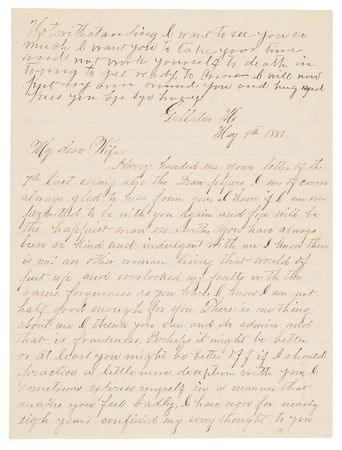 Notwithstanding I want to see you so
much I want you to take your time
and not work yourself to death in
trying to get ready to come I will now
put my arm around you and hug and
kiss you bye bye
May 9th 1883
My dear Wife:
Harry handed me your letter of the
7th last evening also the Draw paper, I am of course
always glad to hear from you, I know if I am ever
permitted to be with you again and free will be
the happiest man on earth, You have always
been so kind and indulgent with me I know there
is not an other woman living that would of
put up and overlooked my faults with the
same forgiveness as you have I know I am not
half good enough for you. There is one thing
about me I think you can and do admire and
that is frankness. Perhaps it might be better
or at least you might be better off if I should
practice a little more deception with you, I
sometimes express myself in a manner that
makes you feel badly, I have now for nearly
eight years confided my every thought to you